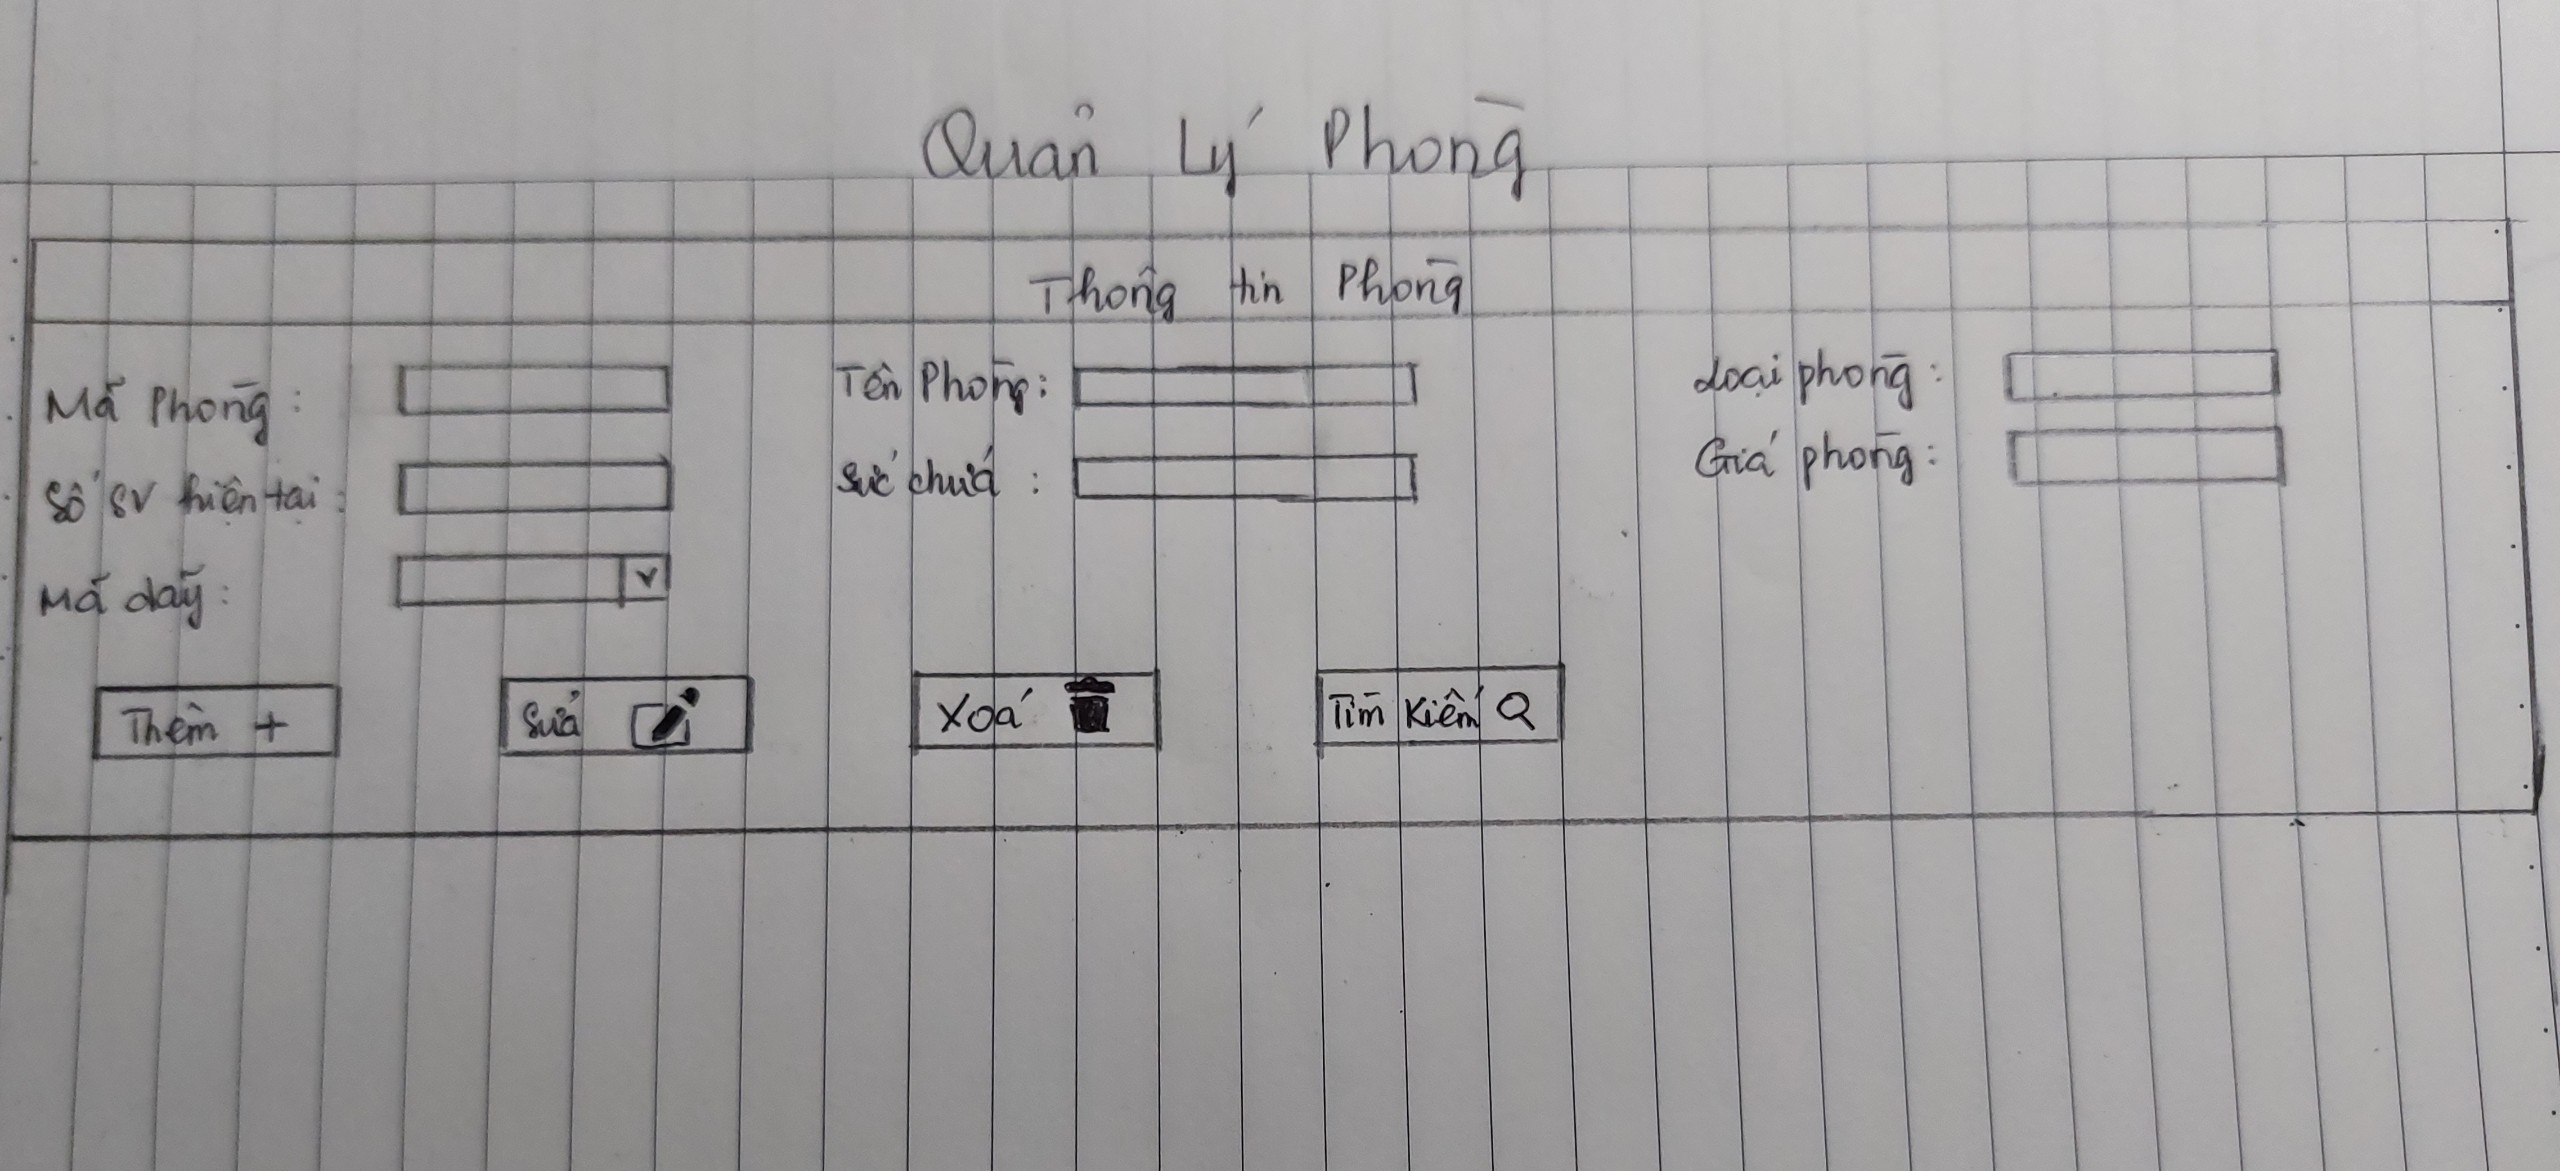 Quản Lý Phòng
Thông tin Phòng
Mã Phòng: Tên Phòng: Loại phòng:
Số SV hiện tại: Sức chứa: Giá phòng:
Mã dãy: v
Thêm + Sửa Xoá Tìm Kiếm